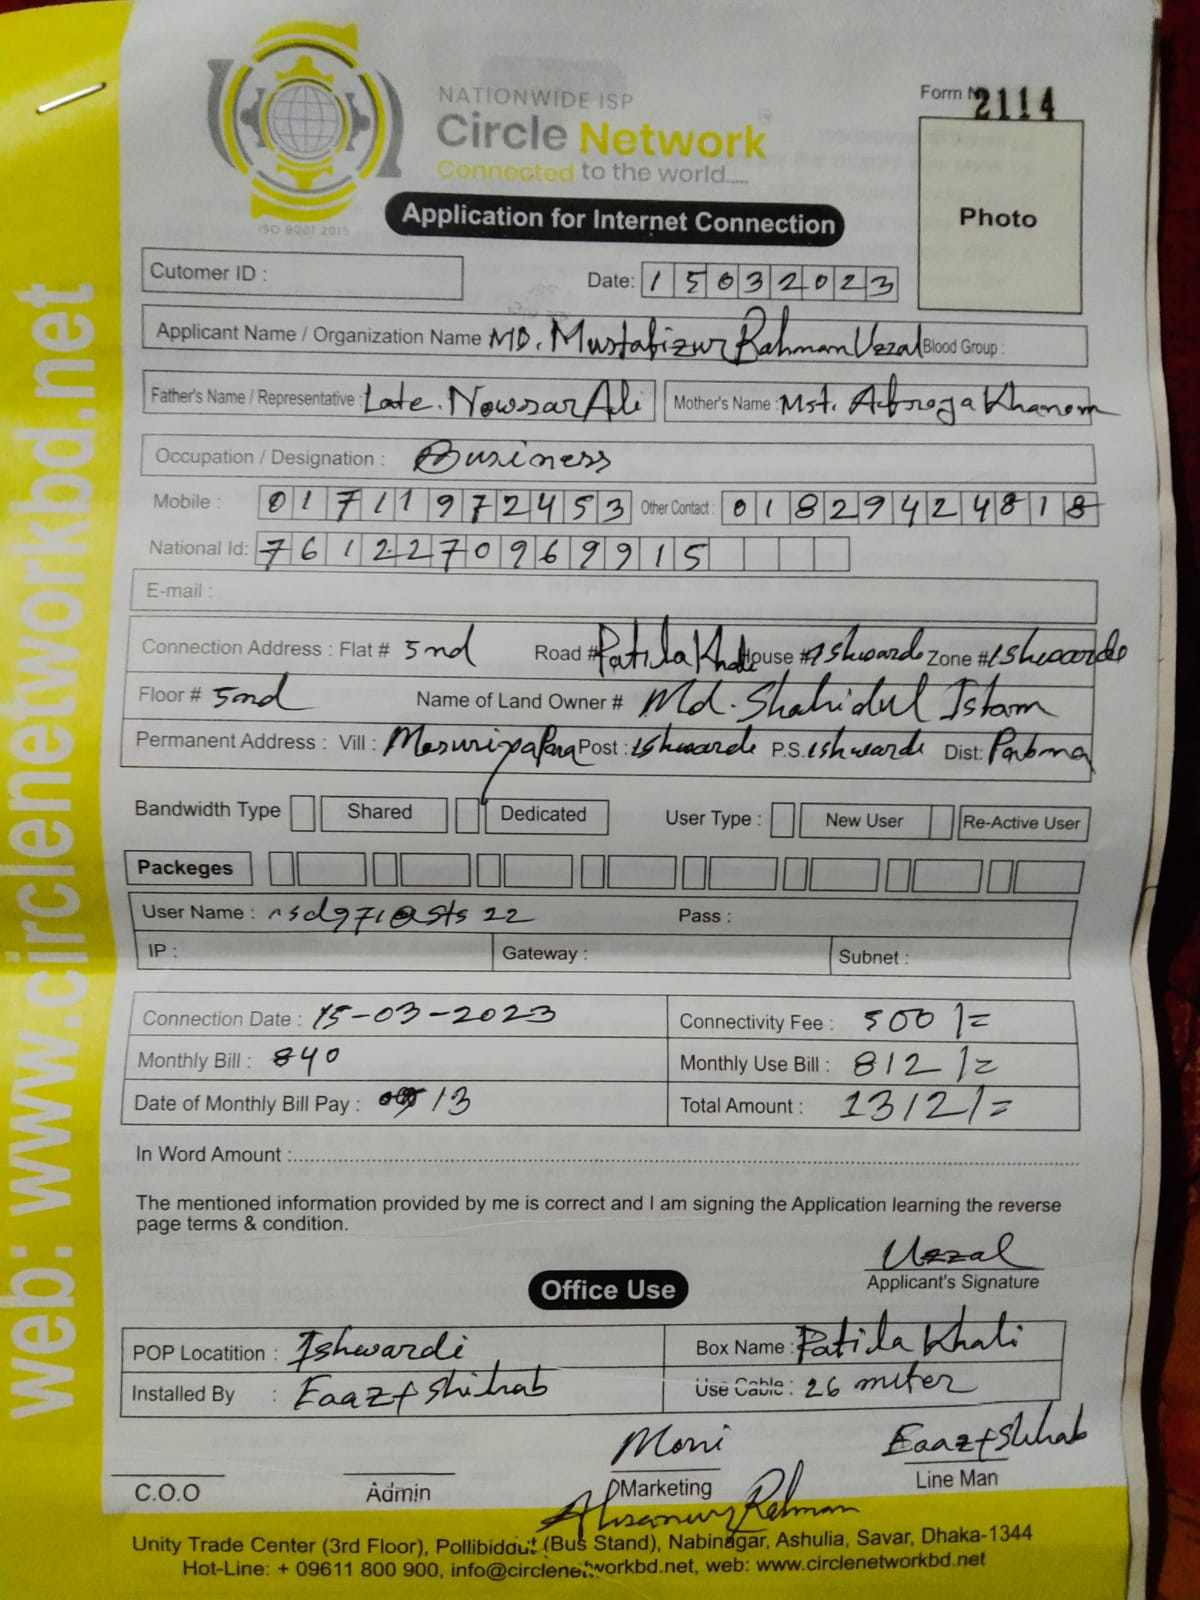 NATIONWIDE ISP
Circle Network
Connected to the world.....
ISO 9001 2015
Form N 2114
Photo
Application for Internet Connection
Cutomer ID :
Date: 15032023
Applicant Name / Organization Name MD. Mustafizur Rahman Uzzal Blood Group :
Father's Name / Representative : Late. Nowsar Ali Mother's Name : Mst. Khanom
Occupation / Designation : Business
Mobile : 01711972453 Other Contact : 01829424818
National Id: 7612270969915
E-mail :
Connection Address : Flat # 5nd Road # Patila Khali House # Ishwarde Zone # Ishwarde
Floor # 5nd Name of Land Owner # Md. Shahidul Islam
Permanent Address : Vill : Masuripapara Post : Ishwarde P.S. Ishwardi Dist: Pabna
Bandwidth Type Shared Dedicated User Type : New User Re-Active User
Packeges
User Name : nsd971@sts 22 Pass :
IP : Gateway : Subnet :
Connection Date : 15-03-2023 Connectivity Fee : 500/=
Monthly Bill : 840 Monthly Use Bill : 812/=
Date of Monthly Bill Pay : 13 Total Amount : 1312/=
In Word Amount :
The mentioned information provided by me is correct and I am signing the Application learning the reverse
page terms & condition.
Uzzal
Applicant's Signature
Office Use
POP Locatition : Ishwardi Box Name : Patila Khali
Installed By : Eaaz+Shihab Use Cable : 26 miter
Moni Eaaz+Shihab
C.O.O Admin Marketing Line Man
Ahsanur Rahman
Unity Trade Center (3rd Floor), Pollibiddut (Bus Stand), Nabinagar, Ashulia, Savar, Dhaka-1344
Hot-Line: + 09611 800 900, info@circlenetworkbd.net, web: www.circlenetworkbd.net
web: www.circlenetworkbd.net